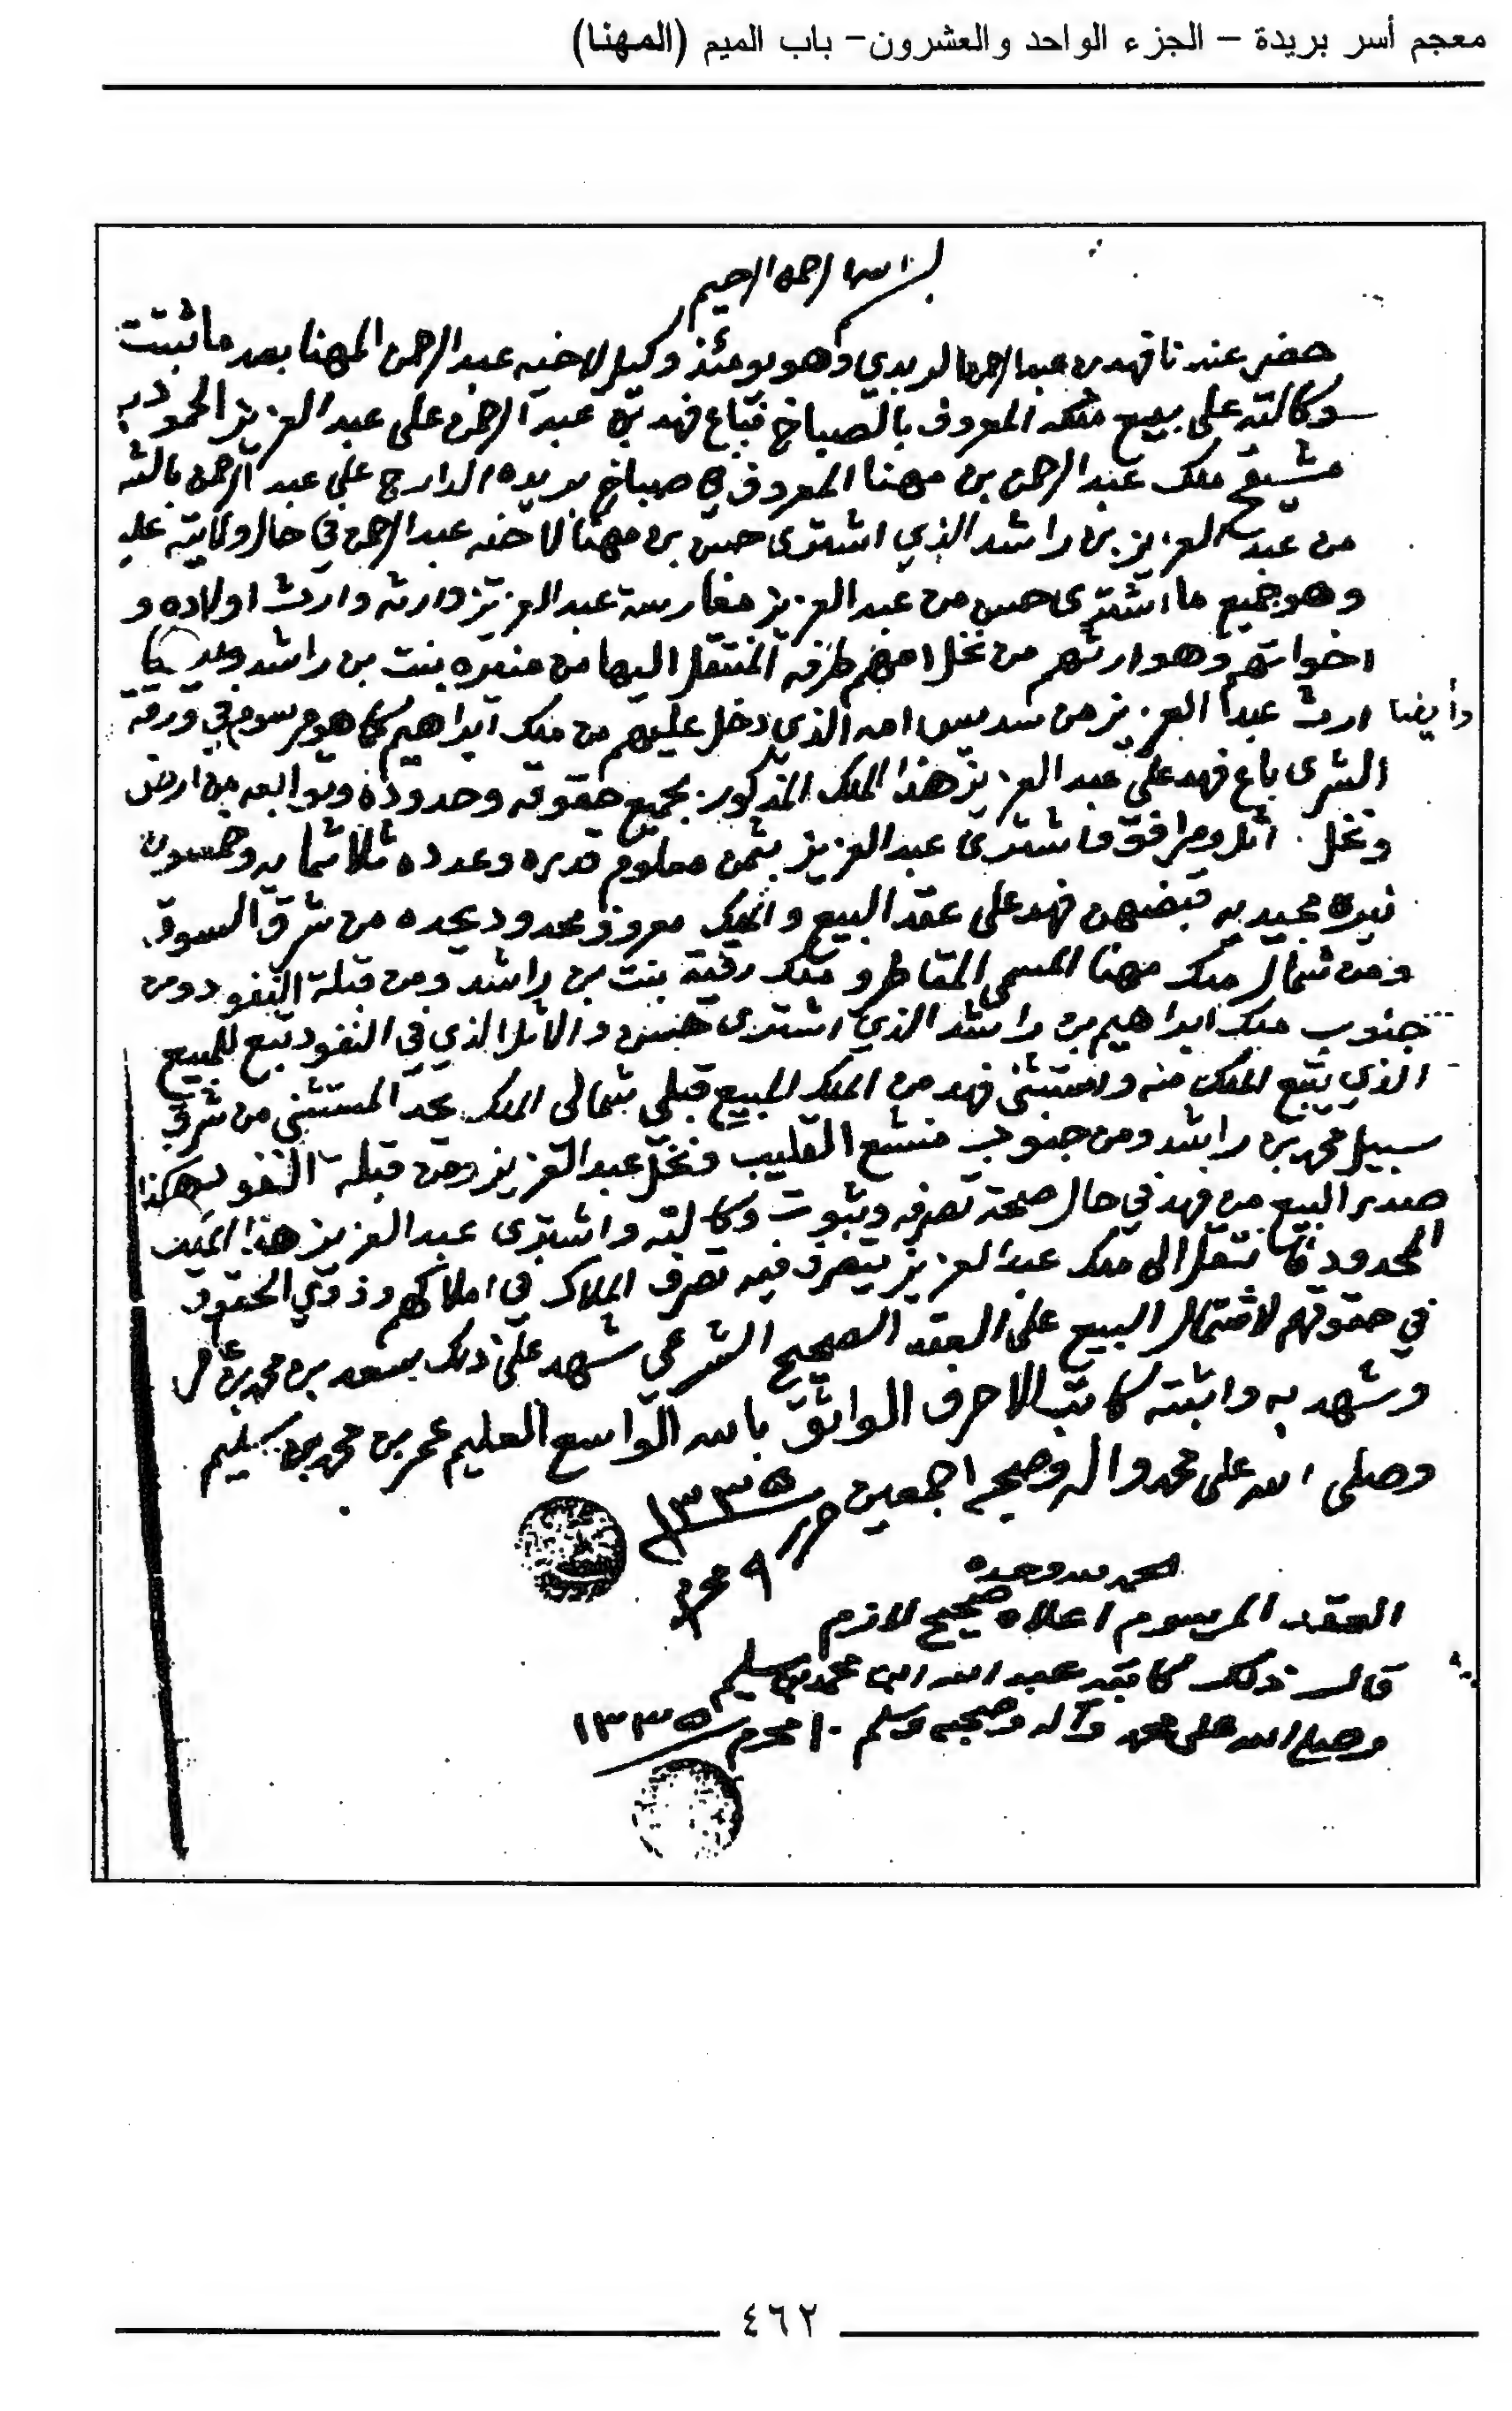 معجم أسر بريدة – الجزء الواحد والعشرون– باب الميم (المهنا)
بسم الله الرحمن الرحيم
حضر عندنا فهد بن عبدالرحمن الربدي وهو يومئذ وكيل لاخيه عبدالرحمن المهنا بعد ما ثبتت
وكالته على بيع ملكه المعروف بالصباخ فباع فهد بن عبدالرحمن على عبدالعزيز الحمود بن
مشيقح ملك عبدالرحمن بن مهنا المعروف في صباخ بريده الدارج على عبدالرحمن بالشر
من عبدالعزيز بن راشد الذي اشترى حسن بن مهنا لاخيه عبدالرحمن في حال ولايته عليه
وهو جميع ما اشترى حسن من عبدالعزيز مغارسة عبدالعزيز وارثه وارث اولاده و
اخواتهم وهو ارثهم من نخل امهم طرفه المنتقل اليها من منيره بنت بن راشد
وأيضا ارث عبدالعزيز من سديس امه الذي دخل عليهم من ملك ابراهيم كما هو مرسوم في ورقة
الشرى باع فهد على عبدالعزيز هذا الملك المذكور بجميع حقوقه وحدوده وتوابعه من ارض
ونخل اثل ومرافق فاشترى عبدالعزيز بثمن معلوم قدره وعدده ثلاثمايه وخمسون
نيره مجيديه قبضهن فهد على عقد البيع والملك معروف محدود يحده من شرق السوق
ومن شمال ملك مهنا المسمى المقاطر وملك رقية بنت بن راشد ومن قبلة النفود ومن
جنوب ملك ابراهيم بن راشد الذي اشترى حسن والاثل الذي في النفود تبع للمبيع
الذي يتبع الملك منه واستثنى فهد من الملك المبيع قبلي شمالي الملك يحد المستثنى من شرق
سبيل محمد بن راشد ومن جنوب منشع القليب ونخل عبدالعزيز ومن قبلة النفود هكذا
صدر البيع من فهد في حال صحة تصرفه وثبوت وكالته واشترى عبدالعزيز هذا الملك
المحدود فانتقل الى ملك عبدالعزيز يتصرف فيه تصرف الملاك في املاكهم وذوي الحقوق
في حقوقهم لاشتمال البيع على العقد الصحيح الشرعي شهد على ذلك سعد بن محمد بن
وشهد به واثبته كاتب الاحرف الواثق بالله الواسع العليم عمر بن محمد بن سليم
وصلى الله على محمد واله وصحبه اجمعين حرر ١٣٣٥
٩ محرم
الحمد لله وحده
العقد المرسوم اعلاه صحيح لازم
قال ذلك كاتبه عبد الله ابن محمد بن سليم
وصلى الله على محمد وآله وصحبه وسلم ١٠ محرم ١٣٣٥
٤٦٢